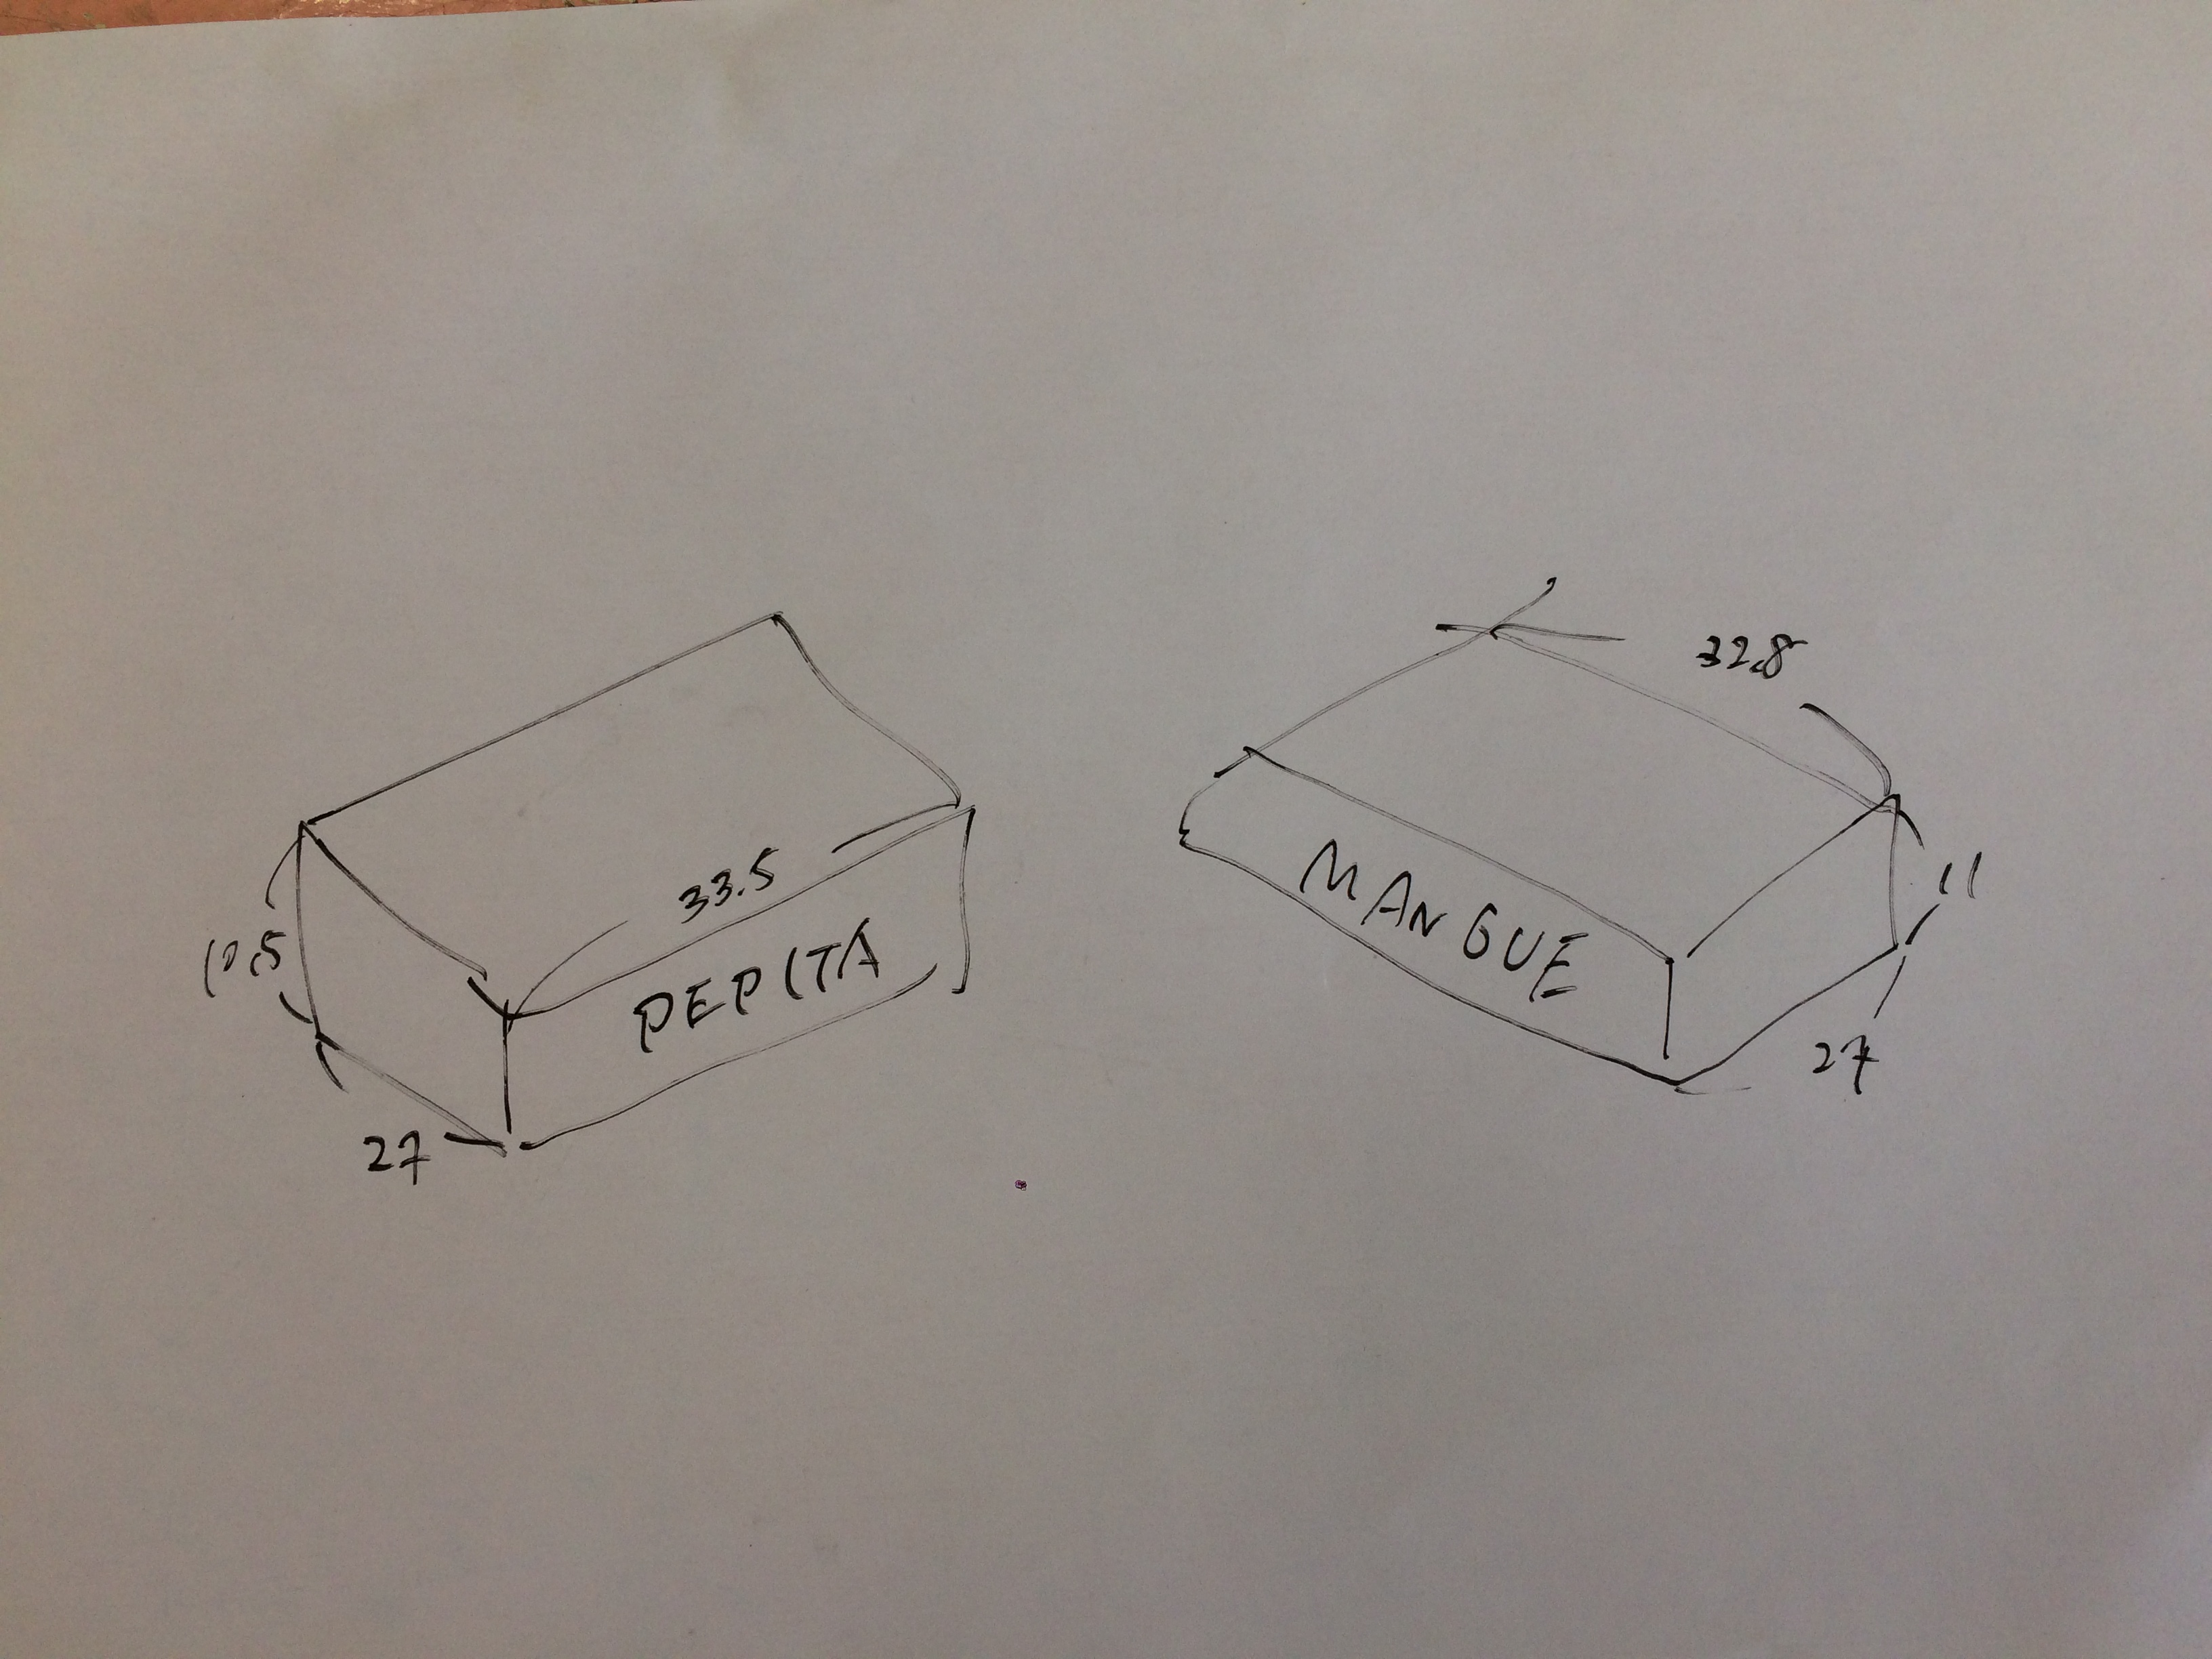 33.5
10,5
PEPITA
27
32.8
11
MANGUE
27